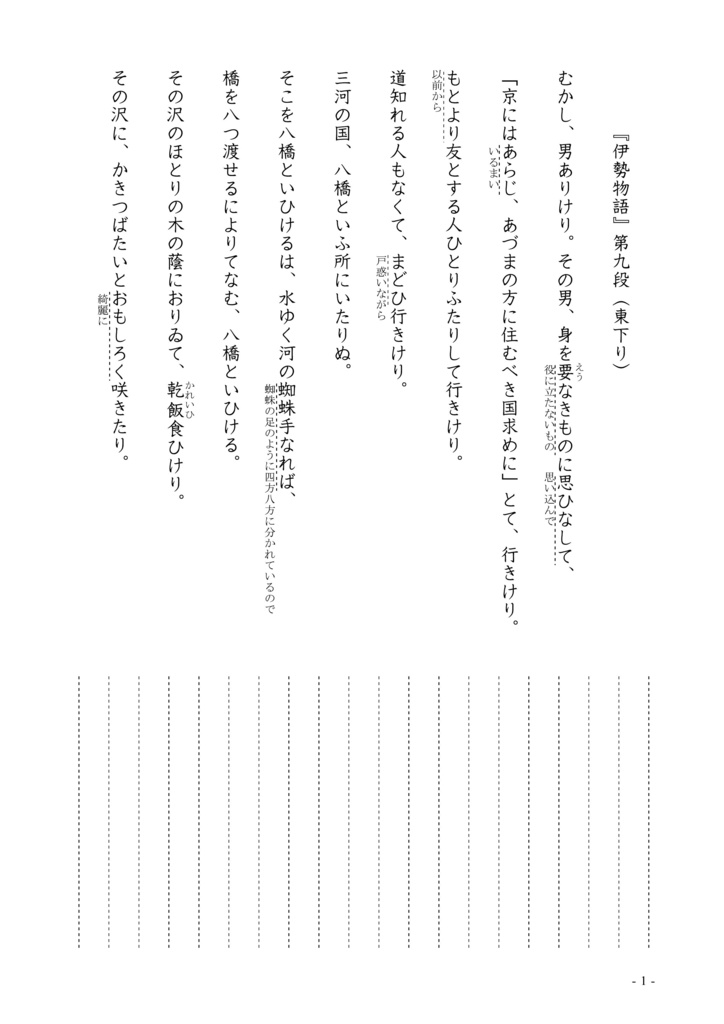 『伊勢物語』第九段（東下り）
むかし、男ありけり。その男、身を要なきものに思ひなして、
えう
役に立たないもの
思い込んで
「京にはあらじ、あづまの方に住むべき国求めに」とて、行きけり。
いるまい
もとより友とする人ひとりふたりして行きけり。
以前から
道知れる人もなくて、まどひ行きけり。
戸惑いながら
三河の国、八橋といふ所にいたりぬ。
そこを八橋といひけるは、水ゆく河の蜘蛛手なれば、
蜘蛛の足のように四方八方に分かれているので
橋を八つ渡せるによりてなむ、八橋といひける。
その沢のほとりの木の蔭におりゐて、乾飯食ひけり。
かれいひ
その沢に、かきつばたいとおもしろく咲きたり。
綺麗に
- 1 -